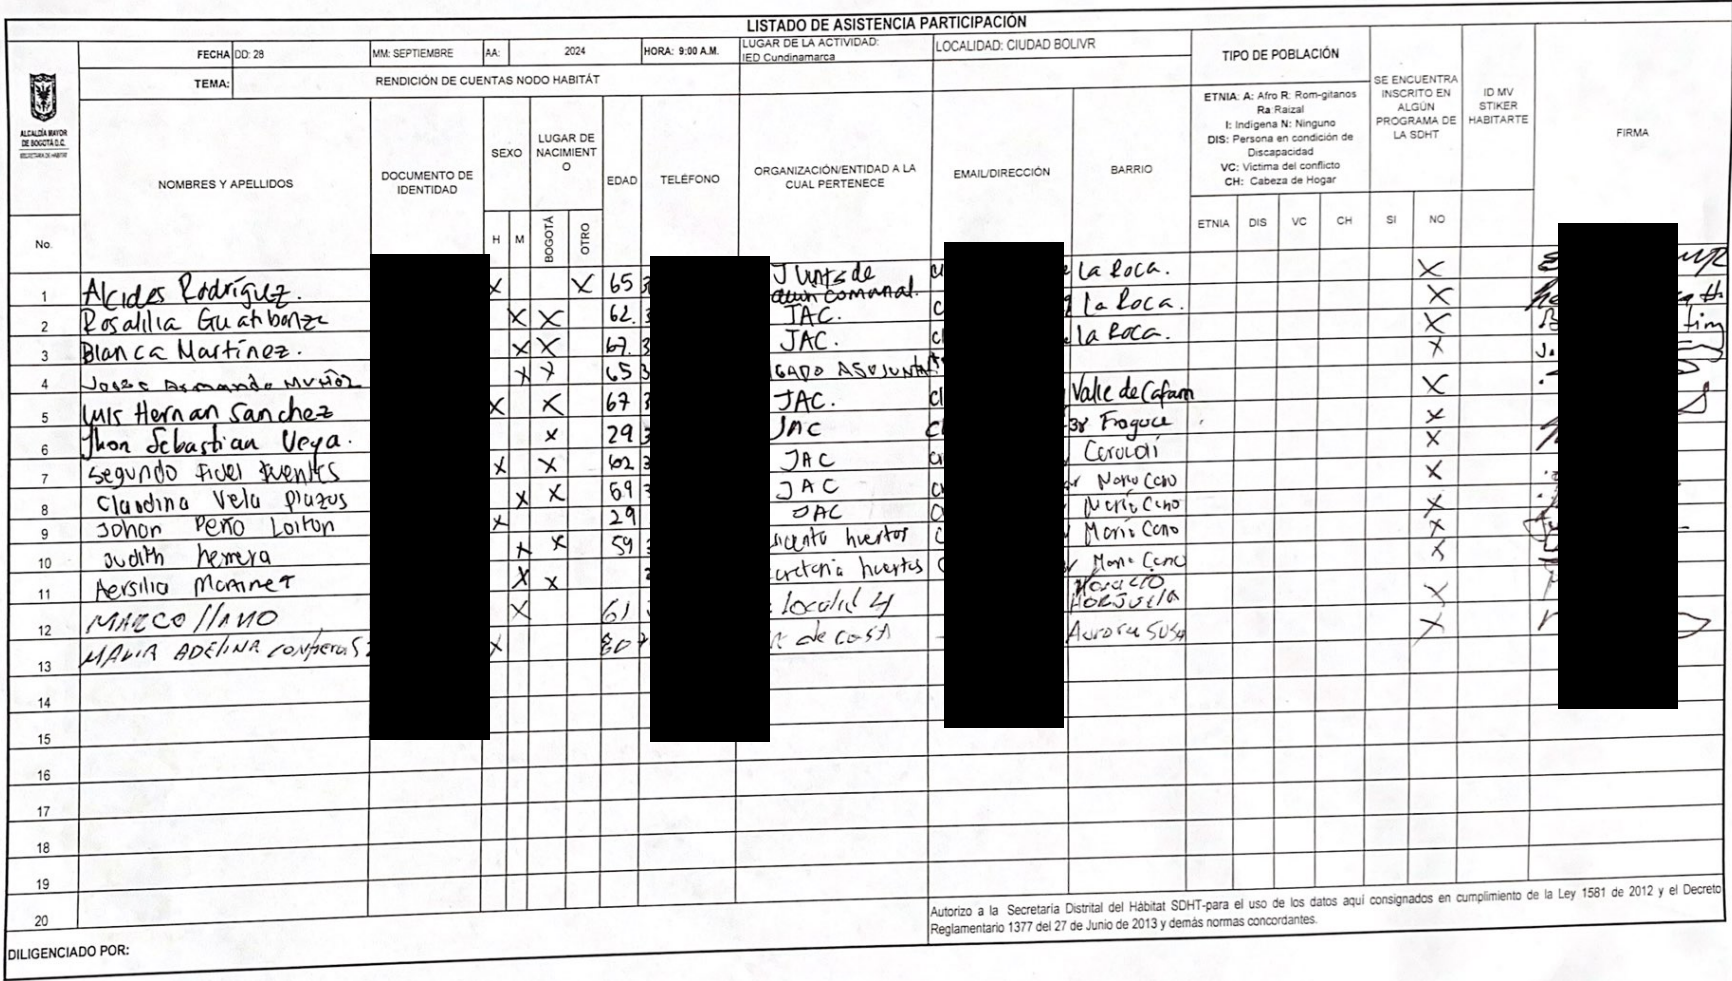 LISTADO DE ASISTENCIA PARTICIPACIÓN
FECHA DD: 28 MM: SEPTIEMBRE AA: 2024 HORA: 9:00 A.M. LUGAR DE LA ACTIVIDAD: IED Cundinamarca LOCALIDAD: CIUDAD BOLIVR
TEMA: RENDICIÓN DE CUENTAS NODO HABITÁT
ALCALDÍA MAYOR
DE BOGOTÁ D.C.
SECRETARÍA DE HÁBITAT
TIPO DE POBLACIÓN
ETNIA: A: Afro R: Rom-gitanos
Ra Raizal
I: Indígena N: Ninguno
DIS: Persona en condición de
Discapacidad
VC: Victima del conflicto
CH: Cabeza de Hogar
SE ENCUENTRA
INSCRITO EN
ALGÚN
PROGRAMA DE
LA SDHT
ID MV
STIKER
HABITARTE
FIRMA
No. NOMBRES Y APELLIDOS DOCUMENTO DE IDENTIDAD SEXO LUGAR DE NACIMIENTO EDAD TELÉFONO ORGANIZACIÓN/ENTIDAD A LA CUAL PERTENECE EMAIL/DIRECCIÓN BARRIO
H M BOGOTÁ OTRO ETNIA DIS VC CH SI NO
1 Alcides Rodríguez. X X 65 Junta de comunal. La Roca. X
2 Rosalilia Guatibonza X X 62. JAC. La Roca. X
3 Blanca Martínez. X X 67. JAC. la Roca. X
4 Armando Muñoz X X 65 X
5 Luis Hernan Sanchez X X 67 JAC. Valle de Cafam X
6 Jhon Sebastian Vega. X 29 JAC X
7 Segundo Fidel Fuentes X X 62 JAC X
8 Claudina Vela X X 69 JAC Cano X
9 Johan X 29 JAC Cano X
10 Judith Herrera X X 59 huertos Mario Cano X
11 X X huertas Cano X
12 MARCO llANO X 61 X
13 MARIA ADELINA X 80 de casa Aurora X
14
15
16
17
18
19
20
Autorizo a la Secretaría Distrital del Hábitat SDHT-para el uso de los datos aquí consignados en cumplimiento de la Ley 1581 de 2012 y el Decreto
Reglamentario 1377 del 27 de Junio de 2013 y demás normas concordantes.
DILIGENCIADO POR: